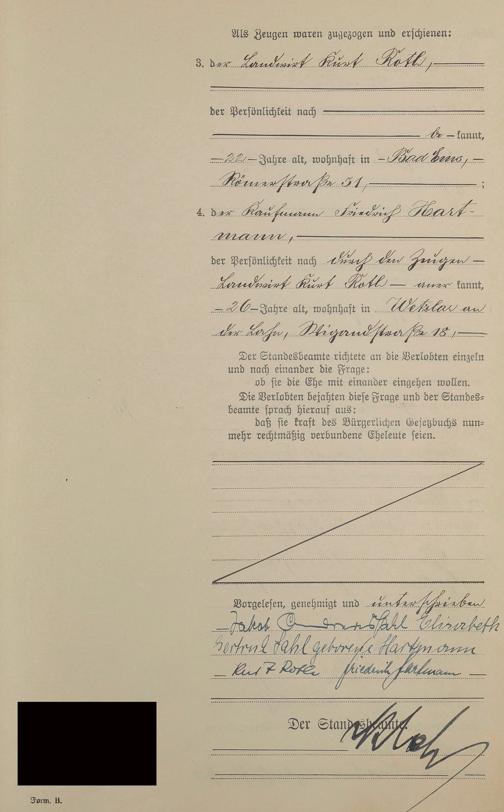 Als Zeugen waren zugezogen und erschienen:
3. der Landwirt Kurt Roth,
der Persönlichkeit nach
be-kannt,
22 Jahre alt, wohnhaft in Bad Ems,
Römerstraße 51, ;
4. der Kaufmann Friedrich Hart-
mann,
der Persönlichkeit nach durch den Zeugen
Landwirt Kurt Roth aner kannt,
26 Jahre alt, wohnhaft in Wetzlar an
der Lahn, Wigandstraße 18,
Der Standesbeamte richtete an die Verlobten einzeln
und nach einander die Frage:
ob sie die Ehe mit einander eingehen wollen.
Die Verlobten bejahten diese Frage und der Standes=
beamte sprach hierauf aus:
daß sie kraft des Bürgerlichen Gesetzbuchs nun=
mehr rechtmäßig verbundene Eheleute seien.
Vorgelesen, genehmigt und unterschrieben
Jakob Elisabeth
Gertrud geborene Hartmann
Kurt Roth Friedrich Hartmann
Der Standesbeamte.
Form. B.